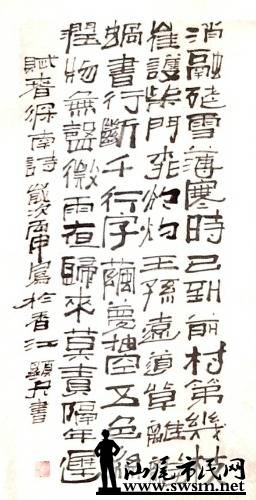 消融雪薄寒時已到前村第幾枝
崔護柴門灼灼王孫遠道草離離
蝸書行斷千行字繭夢抽五色絲
潤物無聲微雨夜歸來莫責隔年遲
賦春深南詩歲次丙申寫於香江書
汕尾市民网
www.swsm.net